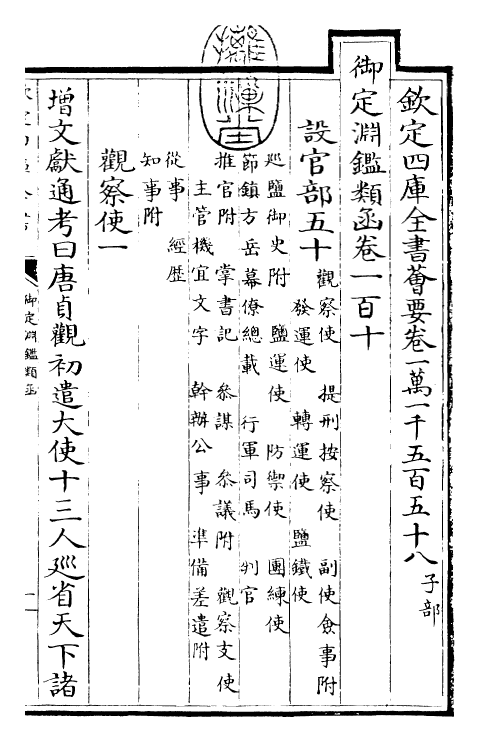 欽定四庫全書薈要卷一萬一千五百五十八 子部
御定淵鑑類函卷一百十
設官部五十
觀察使 提刑按察使 副使僉事附
發運使 轉運使 鹽鐵使
廵鹽御史附 鹽運使 防禦使 團練使
節鎮方岳幕僚總載 行軍司馬 判官
推官附 掌書記 叅謀 叅議附 觀察支使
主管機宜文字 幹辦公事 準備差遣附
從事 經歷
知事附
觀察使一
增文獻通考曰唐貞觀初遣大使十三人廵省天下諸
御定淵鑑類函
一